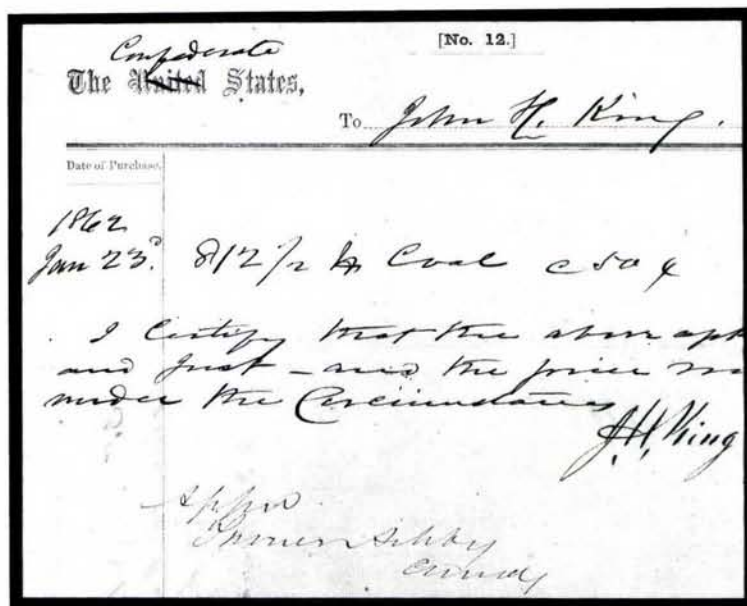 [No. 12.]
Confederate
The United States,
To John H. King.
Date of Purchase.
1862
Jan 23d. 812 1/2 Coal c 50 ¢
I Certify that the above
and just - and the price
under the Circumstances
J.H. King
Turner Ashby